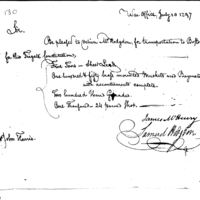 130
War Office, July 20 1797
Sir
Be pleased to receive Mr Hodgdon, for transportation to
for the Frigate Constitution,
Five Tons – Sheet Lead
One hundred & fifty eight hundred Muskets and Bayonets
with accoutrements complete.
Two hundred
One Thousand – 24 pound Shot –
James McHenry
Samuel Hodgdon
John Harris